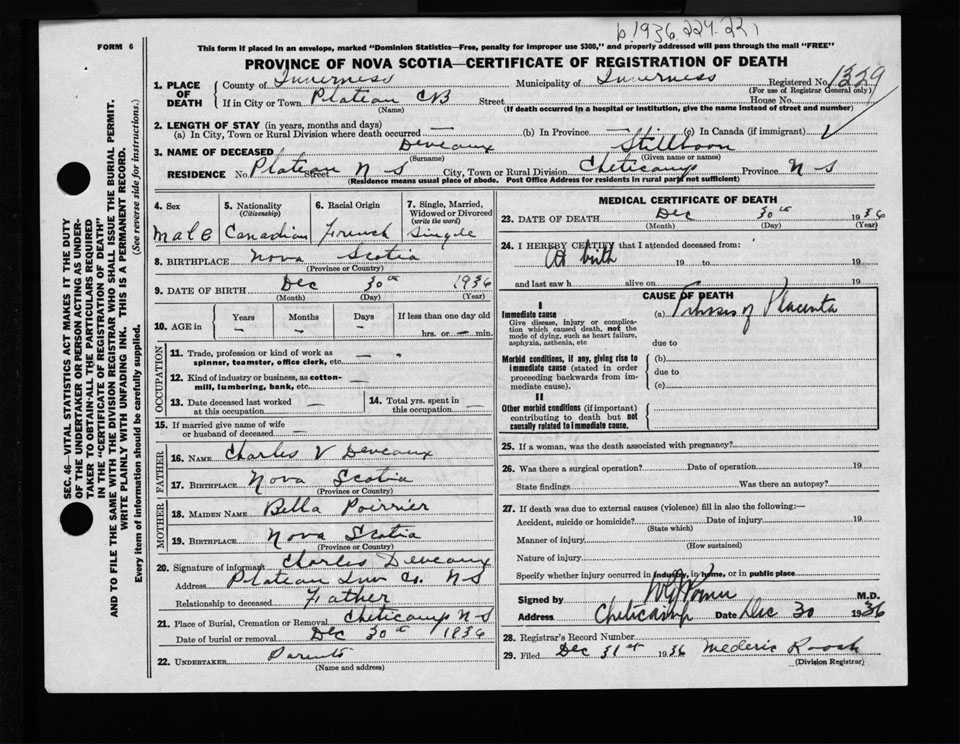 b 1936 224-227
FORM 6
This form if placed in an envelope, marked "Dominion Statistics—Free, penalty for improper use $300," and properly addressed will pass through the mail "FREE"
PROVINCE OF NOVA SCOTIA—CERTIFICATE OF REGISTRATION OF DEATH
1. PLACE OF DEATH County of Inverness Municipality of Inverness Registered No. 1329
(For use of Registrar General only)
If in City or Town Plateau CB Street House No.
(Name) (If death occurred in a hospital or institution, give the name instead of street and number)
2. LENGTH OF STAY (in years, months and days)
(a) In City, Town or Rural Division where death occurred — (b) In Province — (c) In Canada (if immigrant)
3. NAME OF DECEASED Deveaux Stillborn
(Surname) (Given name or names)
RESIDENCE No. Plateau Street N S City, Town or Rural Division Cheticamp Province N S
(Residence means usual place of abode. Post Office Address for residents in rural parts not sufficient)
4. Sex
male
5. Nationality (Citizenship)
Canadian
6. Racial Origin
French
7. Single, Married, Widowed or Divorced (write the word)
Single
8. BIRTHPLACE Nova Scotia
(Province or Country)
9. DATE OF BIRTH Dec 30th 1936
(Month) (Day) (Year)
10. AGE in Years Months Days If less than one day old
— — — hrs. or — min.
OCCUPATION
11. Trade, profession or kind of work as spinner, teamster, office clerk, etc. —
12. Kind of industry or business, as cotton-mill, lumbering, bank, etc. —
13. Date deceased last worked at this occupation —
14. Total yrs. spent in this occupation —
15. If married give name of wife or husband of deceased —
FATHER
16. NAME Charles V Deveaux
17. BIRTHPLACE Nova Scotia
(Province or Country)
MOTHER
18. MAIDEN NAME Bella Poirrier
19. BIRTHPLACE Nova Scotia
(Province or Country)
20. Signature of informant Charles Deveaux
Address Plateau Inv Co. N S
Relationship to deceased Father
21. Place of Burial, Cremation or Removal Cheticamp N S
Date of burial or removal Dec 30th 1936
22. UNDERTAKER Parents
(Name and address)
MEDICAL CERTIFICATE OF DEATH
23. DATE OF DEATH Dec 30th 1936
(Month) (Day) (Year)
24. I HEREBY CERTIFY that I attended deceased from:
At birth 19 to 19
and last saw h alive on 19
CAUSE OF DEATH
I
Immediate cause (a) of Placenta
Give disease, injury or complication which caused death, not the mode of dying, such as heart failure, asphyxia, asthenia, etc
due to
Morbid conditions, if any, giving rise to immediate cause (stated in order proceeding backwards from immediate cause).
(b)
due to
(c)
II
Other morbid conditions (if important) contributing to death but not causally related to immediate cause.
25. If a woman, was the death associated with pregnancy?
26. Was there a surgical operation? Date of operation 19
State findings Was there an autopsy?
27. If death was due to external causes (violence) fill in also the following:—
Accident, suicide or homicide? Date of injury 19
(State which)
Manner of injury
(How sustained)
Nature of injury
Specify whether injury occurred in industry, in home, or in public place
Signed by M.D.
Address Cheticamp Date Dec 30 1936
28. Registrar's Record Number
29. Filed Dec 31st 1936 Mederic Roach
(Division Registrar)
SEC. 46—VITAL STATISTICS ACT MAKES IT THE DUTY
OF THE UNDERTAKER OR PERSON ACTING AS UNDER-
TAKER TO OBTAIN ALL THE PARTICULARS REQUIRED
IN THE "CERTIFICATE OF REGISTRATION OF DEATH"
AND TO FILE THE SAME WITH THE DIVISION REGISTRAR WHO SHALL ISSUE THE BURIAL PERMIT.
WRITE PLAINLY WITH UNFADING INK. THIS IS A PERMANENT RECORD.
Every item of information should be carefully supplied. (See reverse side for instructions.)